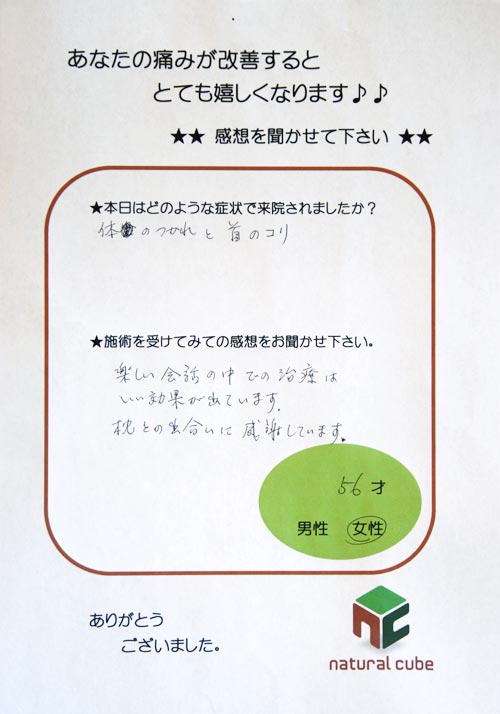 あなたの痛みが改善すると
とても嬉しくなります♪♪
★★ 感想を聞かせて下さい ★★
★本日はどのような症状で来院されましたか？
体のつかれと首のコリ
★施術を受けてみての感想をお聞かせ下さい。
楽しい会話の中での治療は
いい効果が出ています。
枕との出合いに感謝しています。
56才
男性 女性
ありがとう
ございました。
nc
natural cube